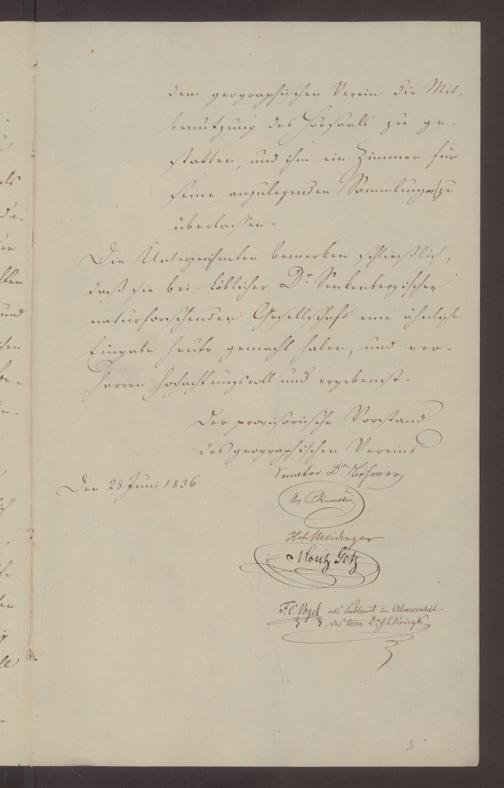 dem geographischen Verein die Mit-
benutzung des Hörsaals zu ge-
statten, und ihm ein Zimmer für
seine anzulegenden Sammlungen zu
überlassen.
Die Unterzeichneten bemerken schließlich,
daß sie bei Löblicher Dr Senkenbergischer
naturforschender Gesellschaft eine ähnliche
Eingabe heute gemacht haben, und ver-
harren hochachtungsvoll und ergebenst.
Der provisorische Vorstand
des geographischen Vereins
Den 28 Juni 1836
Senator Dr Böhmer
Meidinger
Moritz Getz
F. C. Vogel als in Abwesenheit
des Herrn Dr Kriegk
3